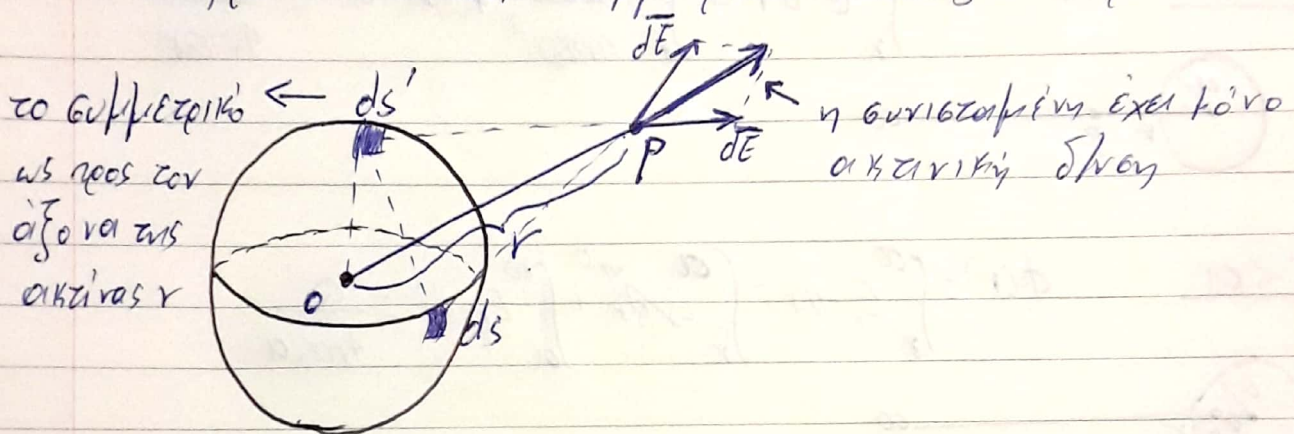 dE
το συμμετρικό ← ds'
ως προς τον
άξονα της
ακτίνας r
P
dE
η συνισταμένη έχει μόνο
ακτινική δ/νση
r
O
ds